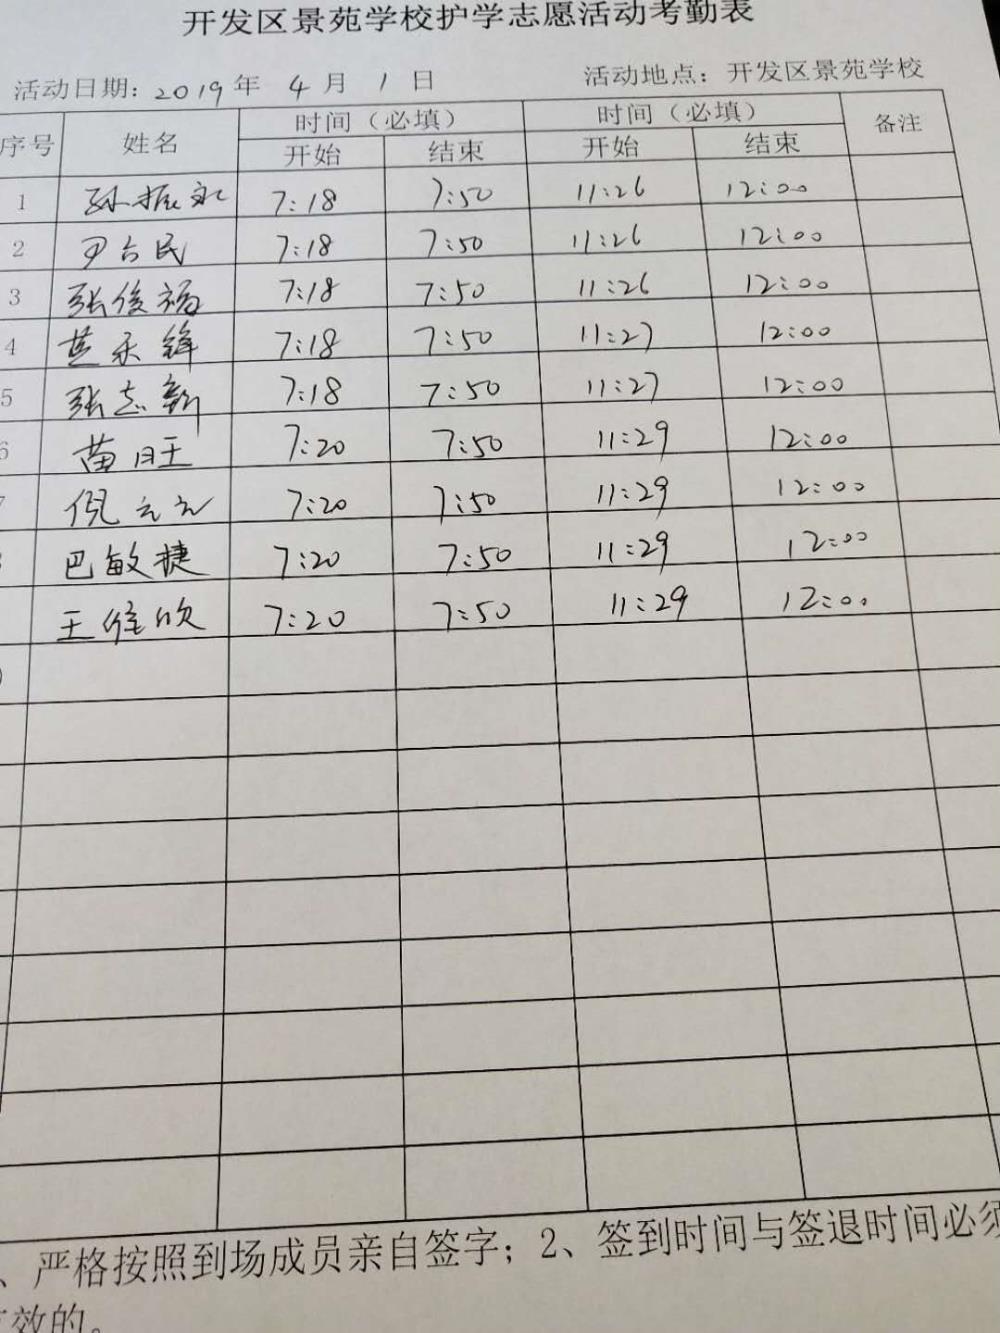 开发区景苑学校护学志愿活动考勤表
活动日期：2019年 4月 1日 活动地点：开发区景苑学校
序号 姓名 时间（必填） 时间（必填） 备注
开始 结束 开始 结束
1 孙振永 7:18 7:50 11:26 12:00
2 尹占民 7:18 7:50 11:26 12:00
3 张俊福 7:18 7:50 11:26 12:00
4 7:18 7:50 11:27 12:00
5 张志新 7:18 7:50 11:27 12:00
6 苗旺 7:20 7:50 11:29 12:00
倪元元 7:20 7:50 11:29 12:00
巴敏捷 7:20 7:50 11:29 12:00
王维欣 7:20 7:50 11:29 12:00
、严格按照到场成员亲自签字；2、签到时间与签退时间必须
效的。